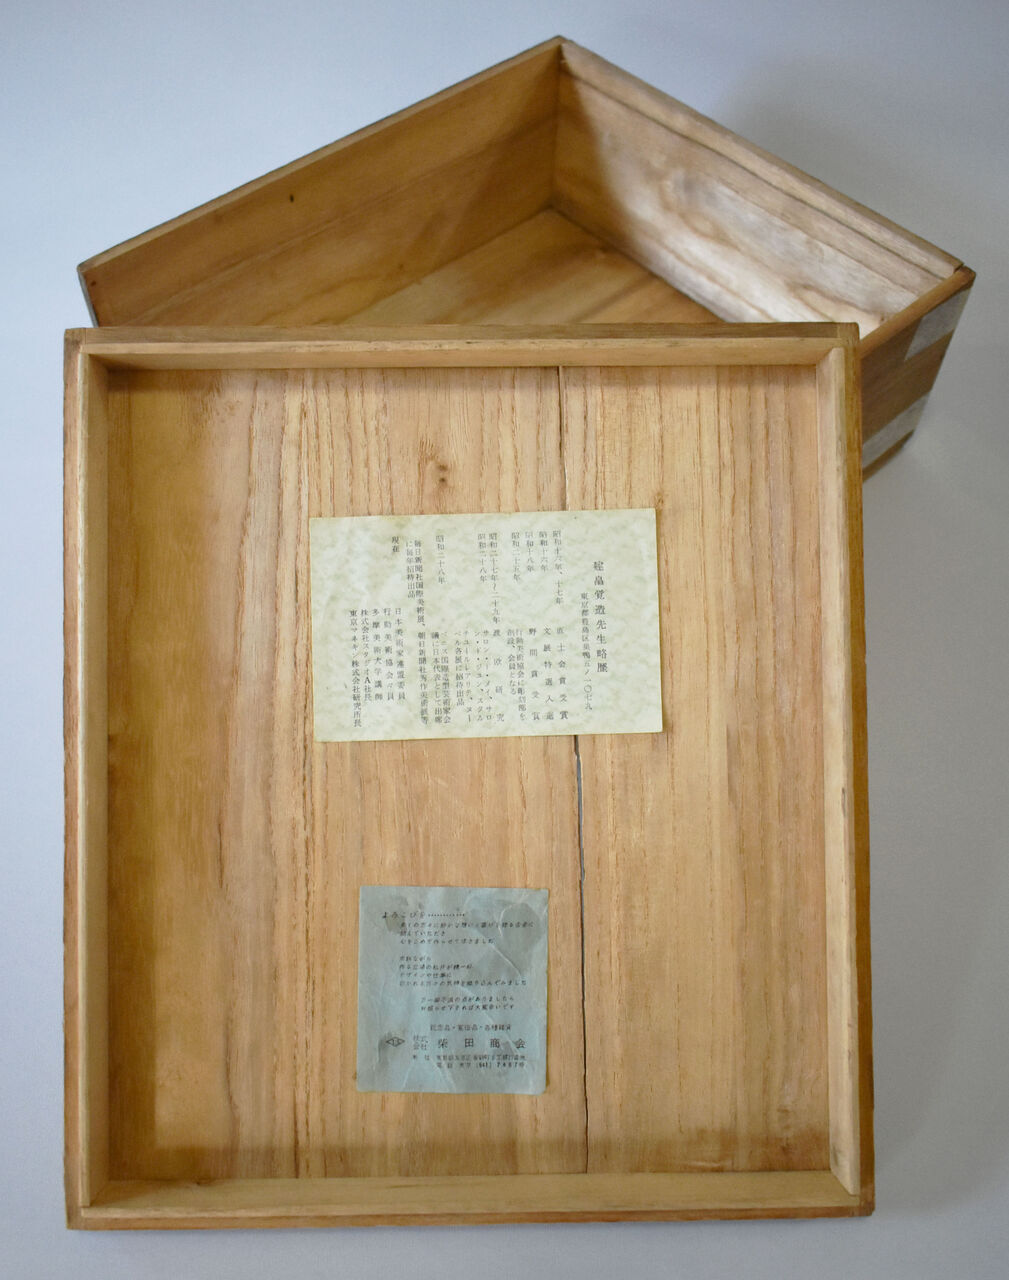 建畠覚造先生略歴
東京都豊島区巣鴨五ノ一〇七九
昭和十六年、十七年 直土会賞受賞
昭和十六年 文展特選入選
昭和十八年 野間賞受賞
昭和二十五年 行動美術協会に彫刻部を
創設、会員となる
昭和二十七年〜二十九年 渡欧研究
昭和二十八年 サロン・ド・メイ、サロ
ン・ド・ジュンヌ・スカル
チュールレアリテ・ヌー
ベル各展に招待出品
昭和二十八年 ベニス国際造型美術家会
議に日本代表として出席
毎日新聞社国際美術展、朝日新聞社秀作美術展等
に毎年招待出品
現在 日本美術家連盟委員
行動美術協会々員
多摩美術大学講師
株式会社スタジオA社長
東京マネキン株式会社研究所長
よろこびを…………
心をこめて作らせて頂きました
デザインや仕事に
記念品・宣伝品・各種雑貨
株式会社 柴田商会